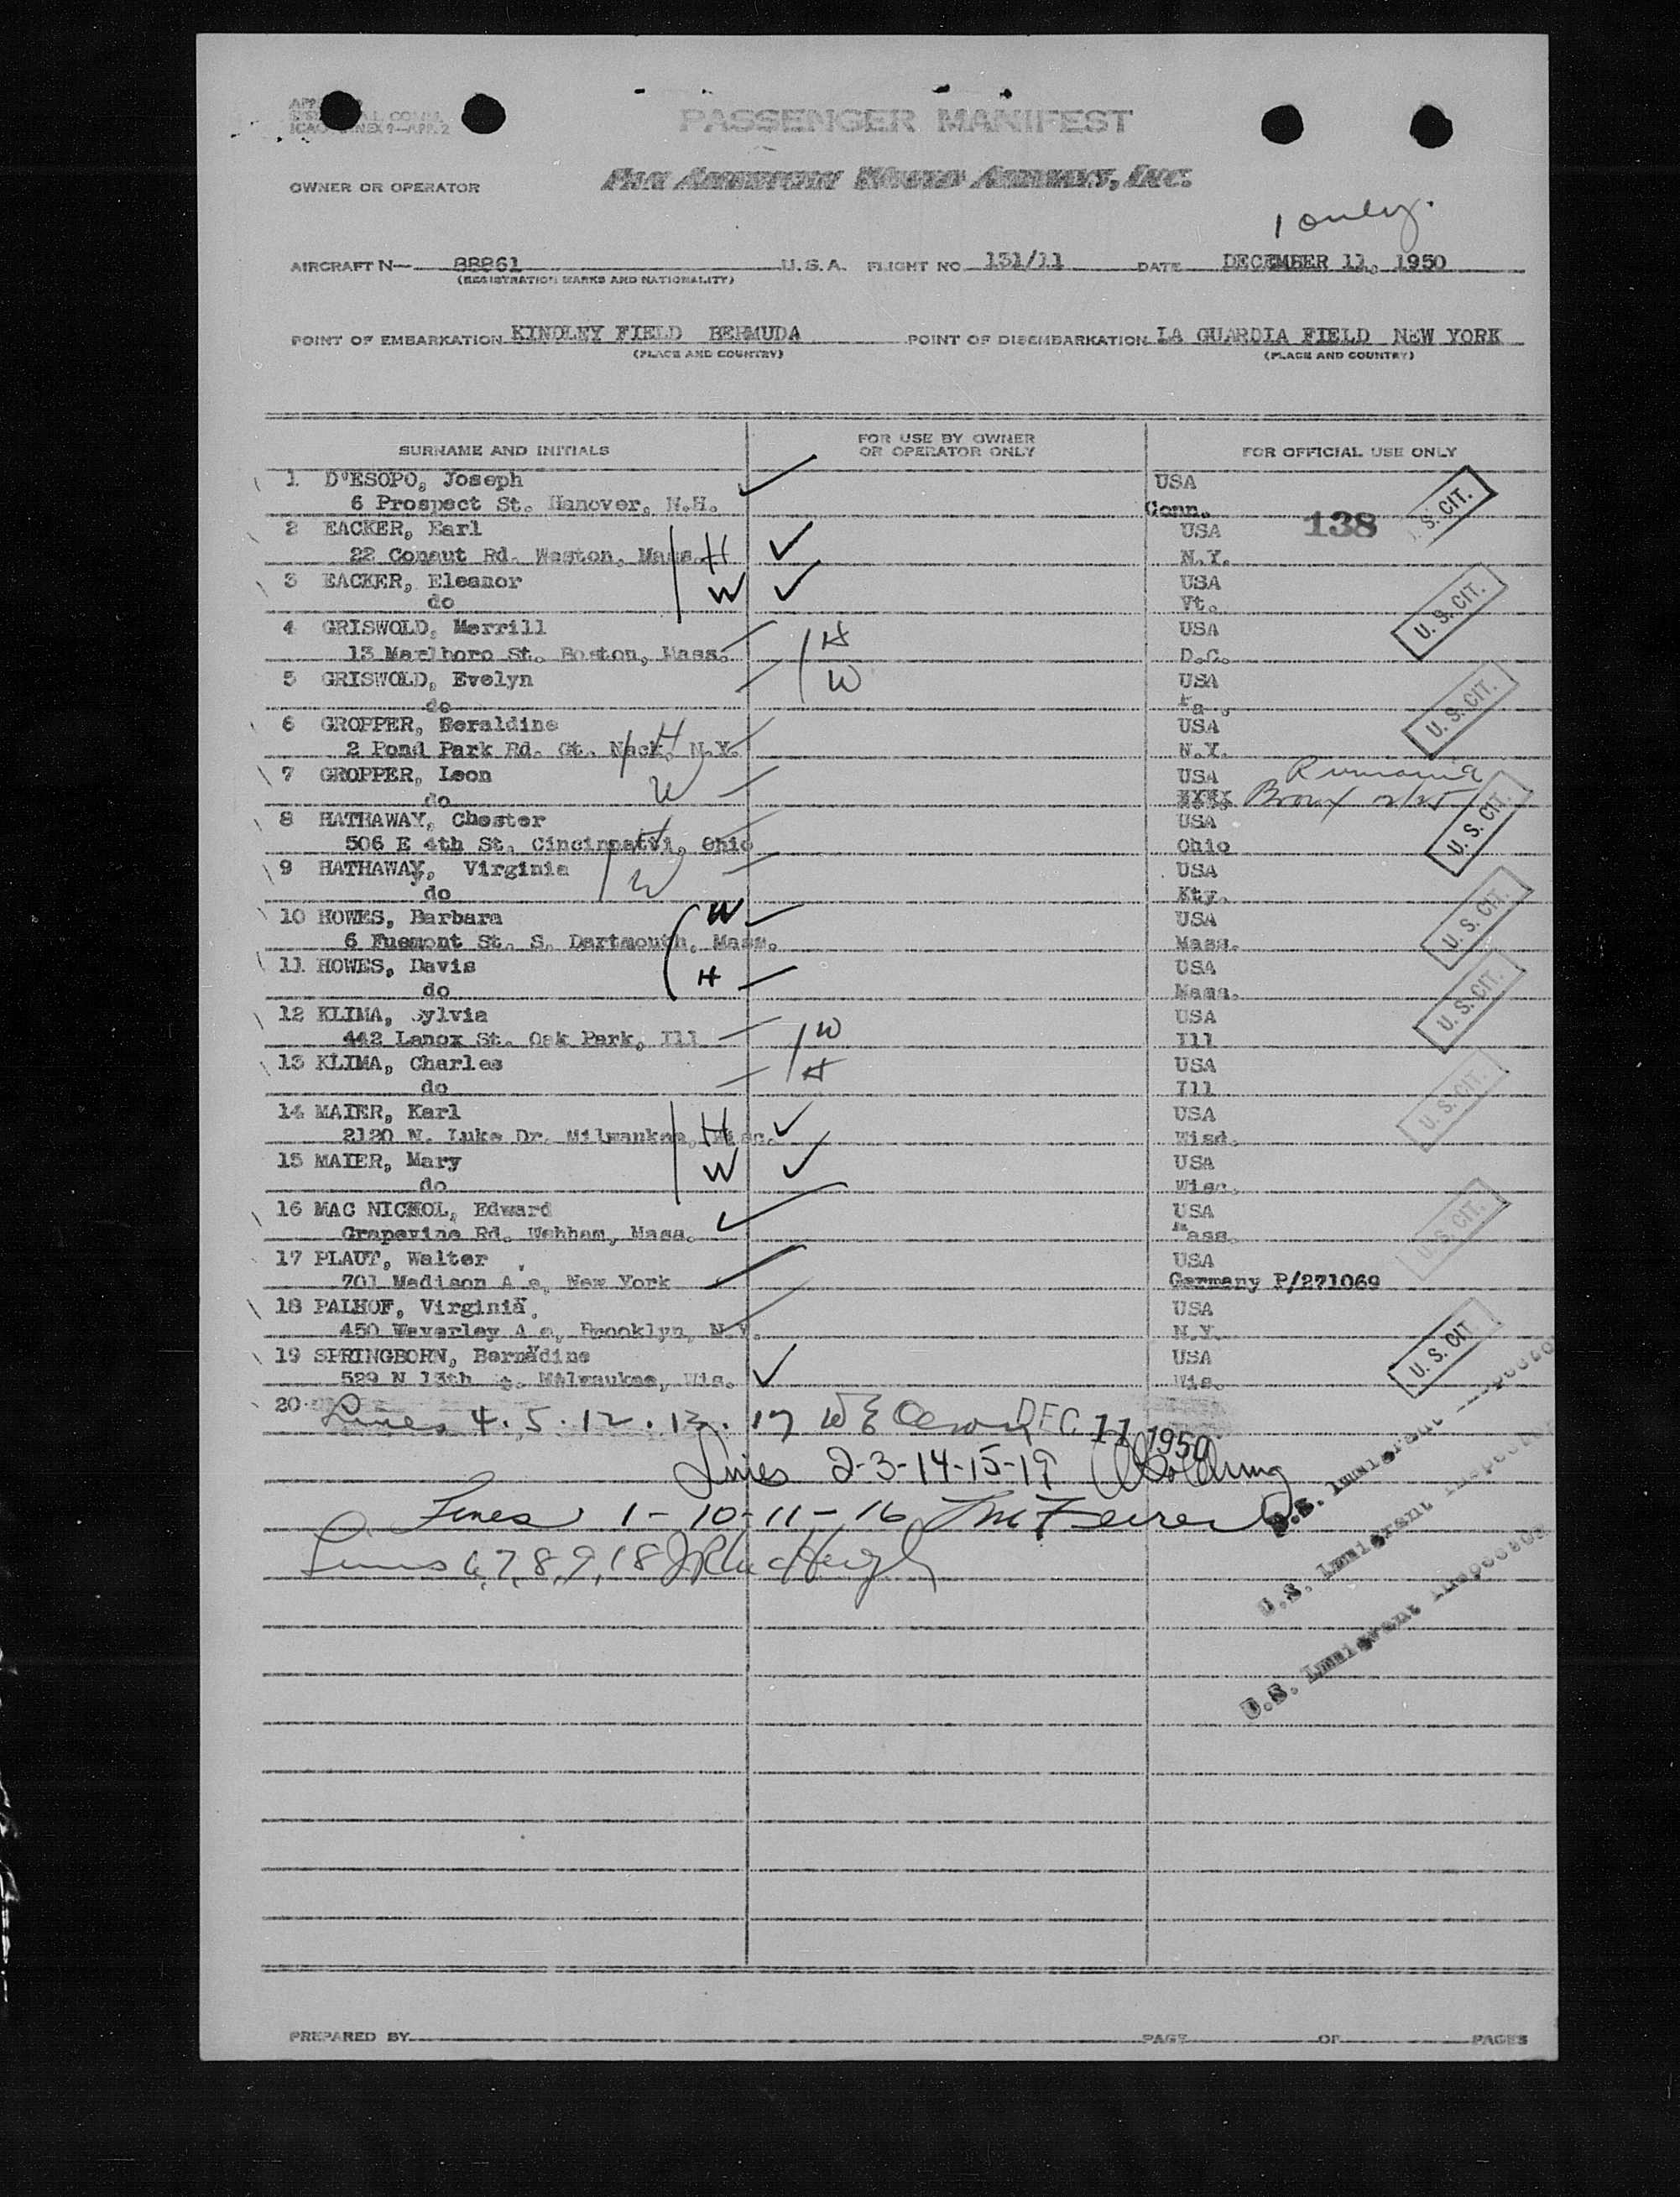 PASSENGER MANIFEST
ICAO ANNEX 9—APP. 2
OWNER OR OPERATOR PAN AMERICAN WORLD AIRWAYS, INC.
1 only.
AIRCRAFT N— 88861 U.S.A. FLIGHT NO 131/11 DATE DECEMBER 11, 1950
(REGISTRATION MARKS AND NATIONALITY)
POINT OF EMBARKATION KINDLEY FIELD BERMUDA POINT OF DISEMBARKATION LA GUARDIA FIELD NEW YORK
(PLACE AND COUNTRY) (PLACE AND COUNTRY)
SURNAME AND INITIALS FOR USE BY OWNER OR OPERATOR ONLY FOR OFFICIAL USE ONLY
1 D'ESOPO, Joseph USA
6 Prospect St. Hanover, N.H. Conn. 138 S. CIT.
2 EACKER, Earl USA
22 Conaut Rd. Weston, Mass. H N.Y.
3 EACKER, Eleanor W USA
do Vt. U. S. CIT.
4 GRISWOLD, Merrill H USA
13 Marlboro St. Boston, Mass. D.C.
5 GRISWOLD, Evelyn W USA
do Pa. U. S. CIT.
6 GROPPER, Geraldine USA
2 Pond Park Rd. Gt. Neck, N.Y. H N.Y.
7 GROPPER, Leon W USA Rumania
do Bronx U. S. CIT.
8 HATHAWAY, Chester USA
506 E 4th St. Cincinnatti, Ohio H Ohio
9 HATHAWAY, Virginia W USA
do Kty. U. S. CIT.
10 HOWES, Barbara W USA
6 Fuemont St. S. Dartmouth, Mass. Mass.
11 HOWES, Davis H USA
do Mass. U. S. CIT.
12 KLIMA, Sylvia W USA
442 Lenox St. Oak Park, Ill Ill
13 KLIMA, Charles H USA
do Ill U. S. CIT.
14 MAIER, Karl USA
2120 N. Luke Dr. Milwaukee, Wisc. H Wisd.
15 MAIER, Mary W USA
do Wisc.
16 MAC NICHOL, Edward USA
Grapevine Rd. Wehham, Mass. Mass. U. S. CIT.
17 PLAUT, Walter USA
701 Madison A e, New York Germany P/271069
18 PALHOF, Virginia USA
450 Waverley A e, Brooklyn, N.Y. N.Y.
19 SPRINGBORN, Bernadine USA
529 N 13th Milwaukee, Wis. Wis. U. S. CIT
20
Lines 4.5.12.13.17 DEC 11 1950
Lines 2-3-14-15-19
Lines 1-10-11-16
Lines 6,7,8,9,18
U.S. Immigrant Inspector
U.S. Immigrant Inspector
U.S. Immigrant Inspector
PREPARED BY PAGE OF PAGES